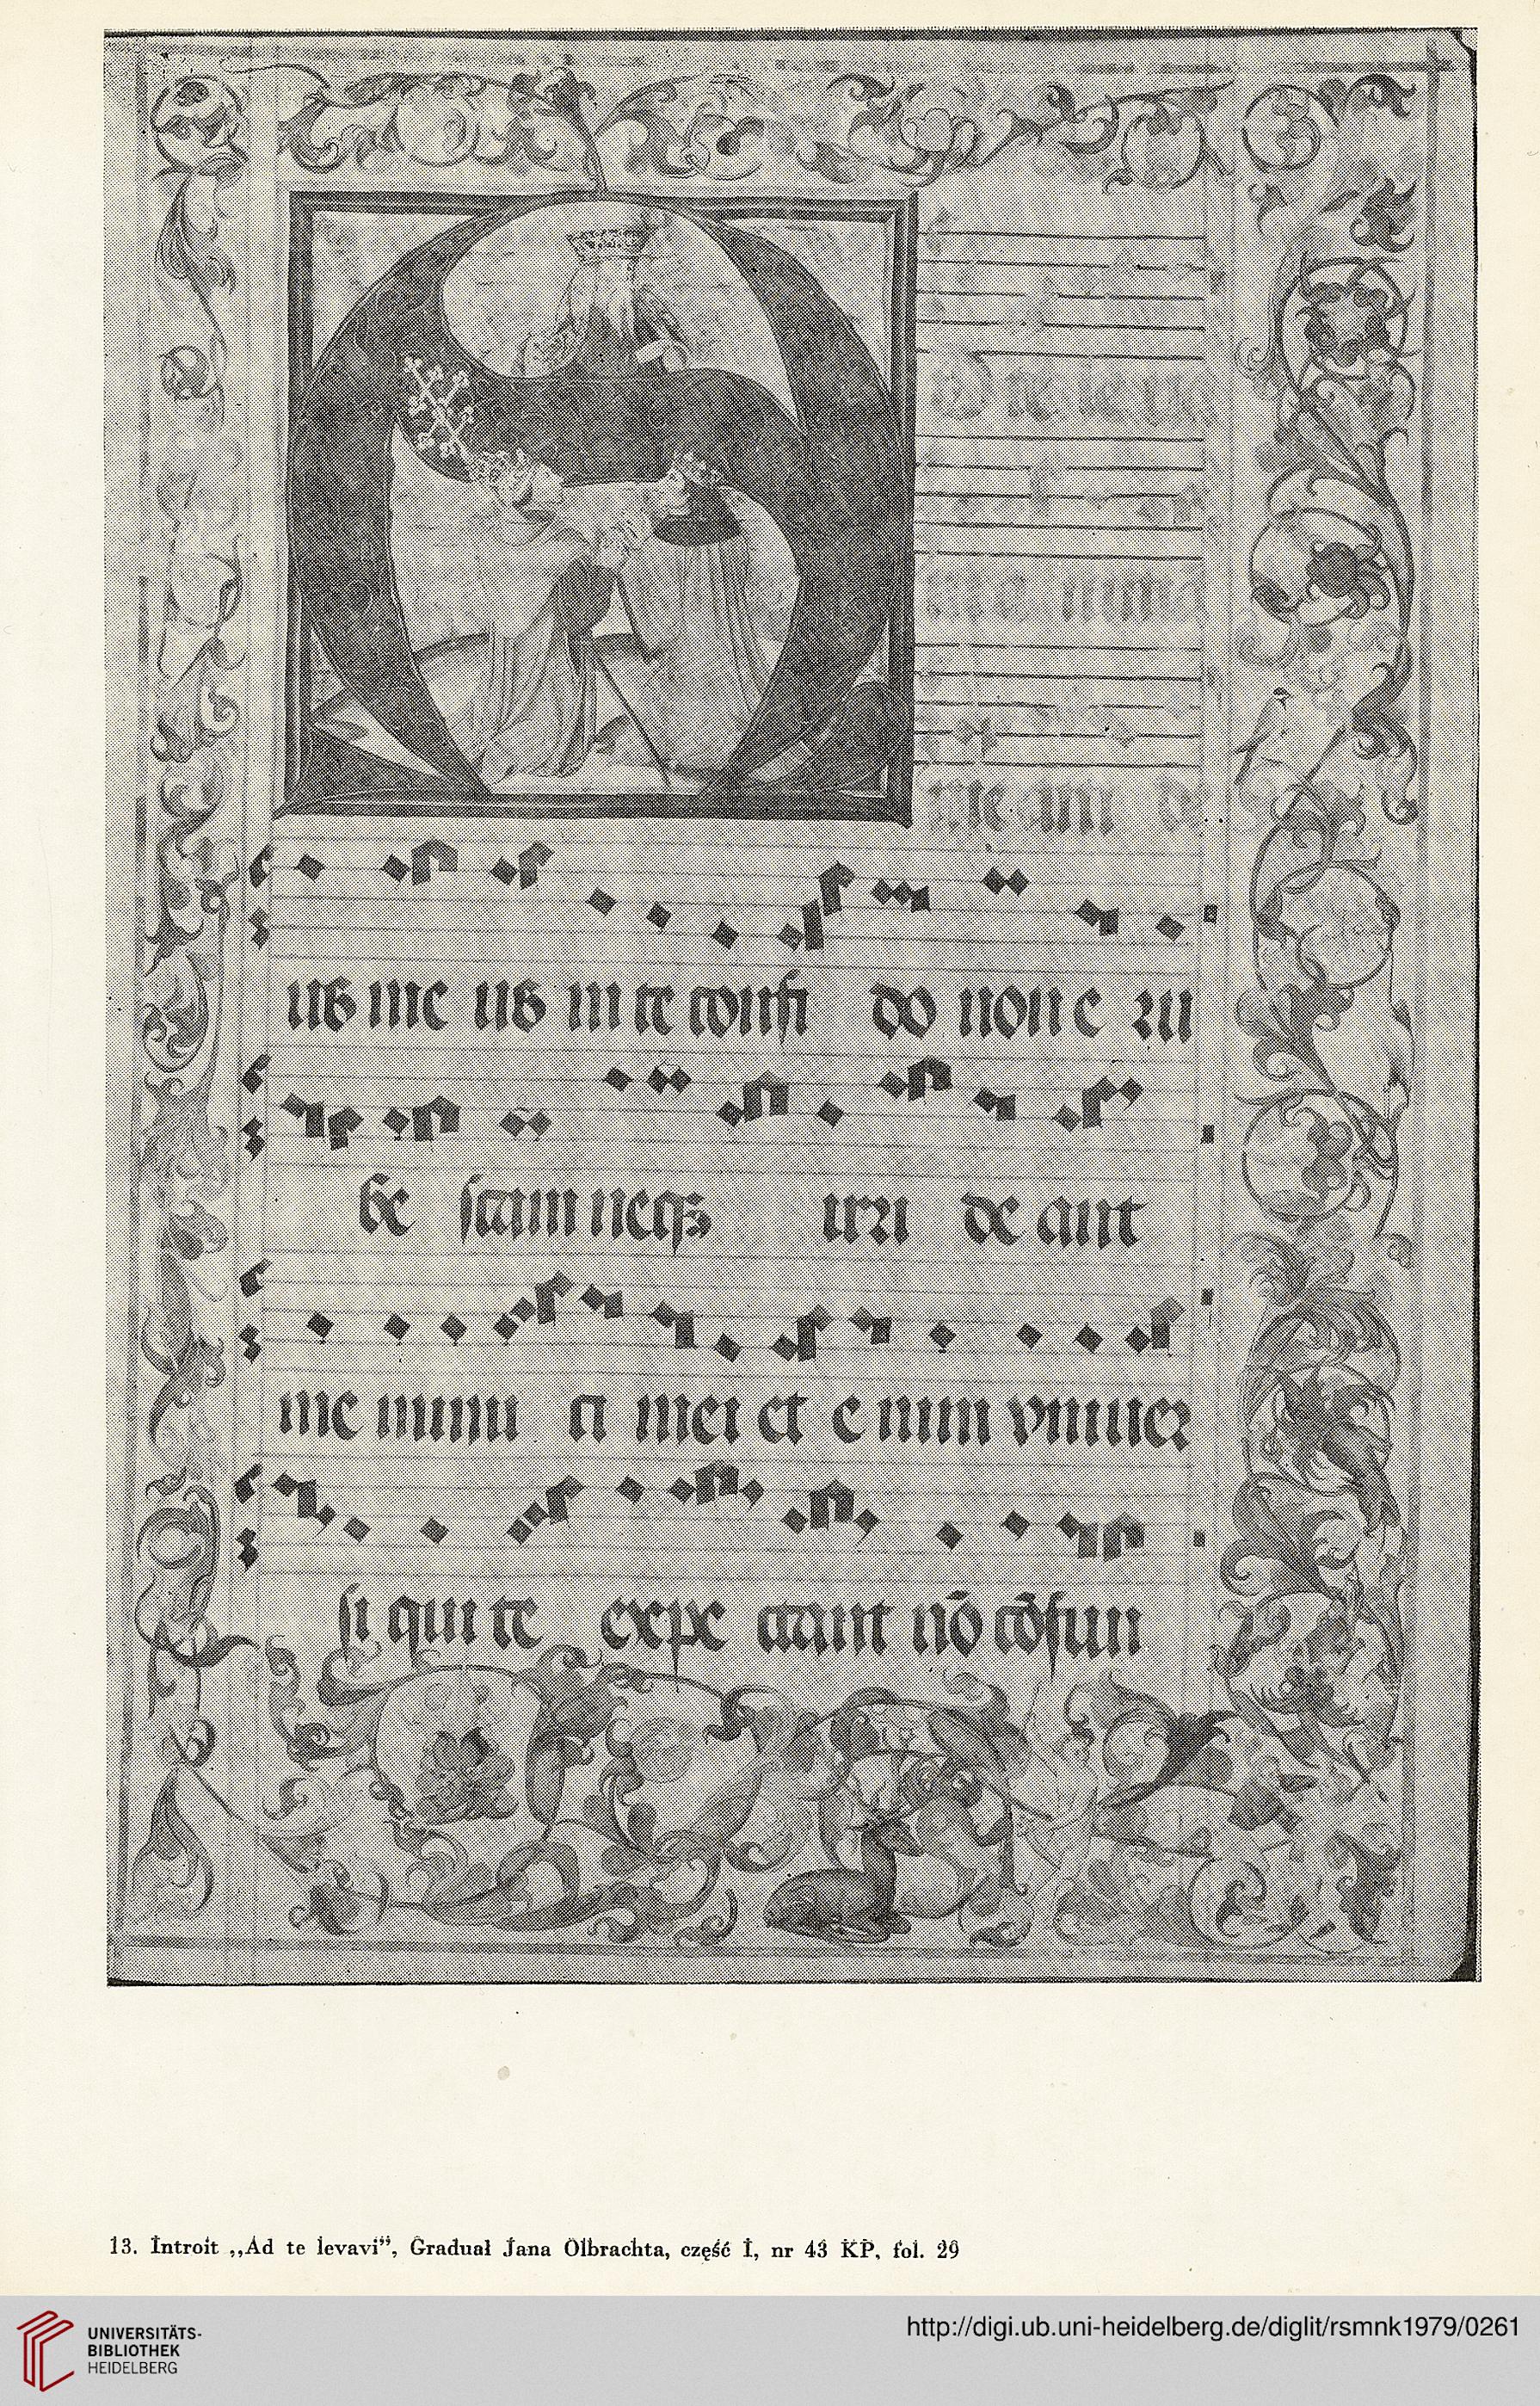 us me us in te confi do non e ru
be scam neqꝫ irri de ant
me inimi ci mei et e nim vniuer
si qui te expe ctant nō cōfun
13. Introit ,,Ad te levavi”, Graduał Jana Olbrachta, część I, nr 43 KP, fol. 29
UNIVERSITÄTS-
BIBLIOTHEK
HEIDELBERG
http://digi.ub.uni-heidelberg.de/diglit/rsmnk1979/0261